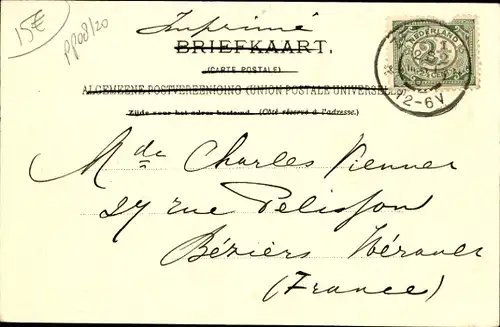 15€
PP08/20
Imprimé
BRIEFKAART.
(CARTE POSTALE)
ALGEMEENE POSTVEREENIGING (UNION POSTALE UNIVERSELLE)
Zijde voor het adres bestemd. (Côté réservé à l'adresse.)
NEDERLAND
2½
12-6V
Mde Charles Vienner
27 rue Pelisson
Béziers Hérault
(France)